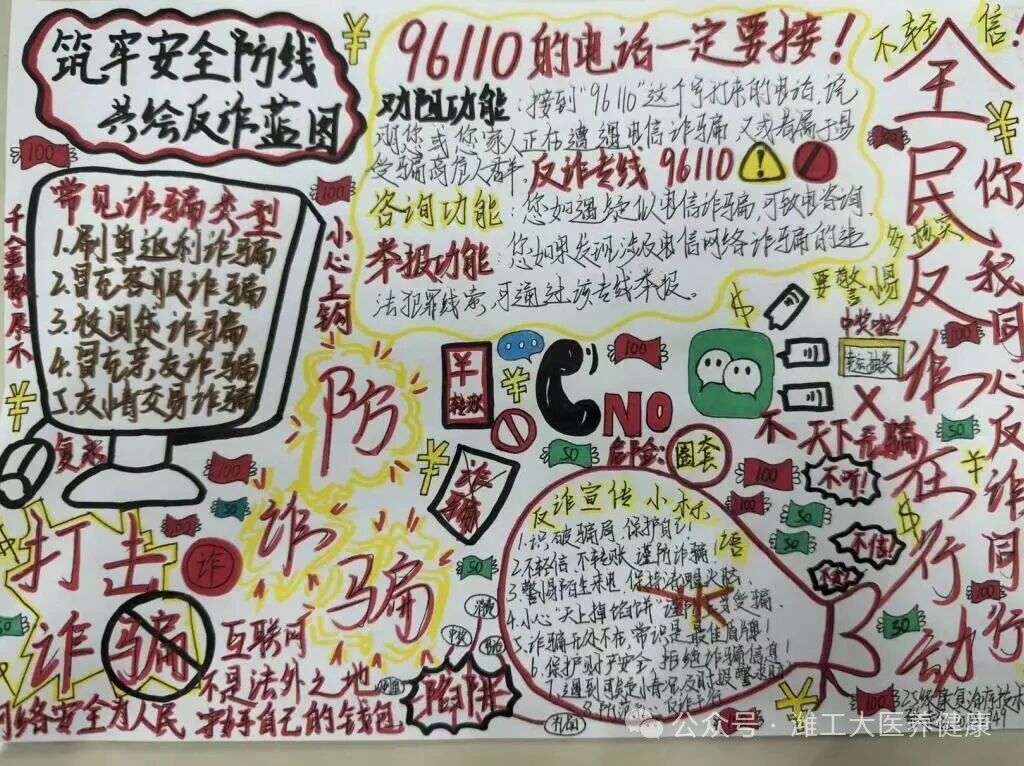 筑牢安全防线
共绘反诈蓝图
96110的电话一定要接！
劝阻功能：接到"96110"这个号打来的电话，说
明您或您家人正在遭遇电信诈骗，又或者属于易
受骗高危人群，反诈专线 96110
咨询功能：您如遇疑似电信诈骗，可致电咨询，
举报功能：您如果发现涉及电信网络诈骗的违
法犯罪线索，可通过该专线举报。
不轻信！
多核实
要警惕
全民反诈在行动
你我同心反诈同行
常见诈骗类型
1.刷单返利诈骗
2.冒充客服诈骗
3.校园贷诈骗
4.冒充亲友诈骗
5.友情交易诈骗
千金散尽不
复来
小心上钩
100
100
防
诈
骗
￥
转账
NO
100
中奖啦！
幸运抽奖
X
圈套
天下无骗
不听！
不信！
诈骗
打击
诈骗
诈
互联网
不是法外之地
网络安全为人民
自己的钱包
陷阱
反诈宣传小标语
1.识破骗局 保护自己！
2.不轻信 不转账 谨防诈骗
3.警惕陌生来电，保持
4.小心"天上掉馅饼"
5.诈骗无处不在，常识是最佳盾牌！
6.保护财产安全，拒绝诈骗信息！
100
50
100
50
100
50
50
公众号 · 潍工大医养健康